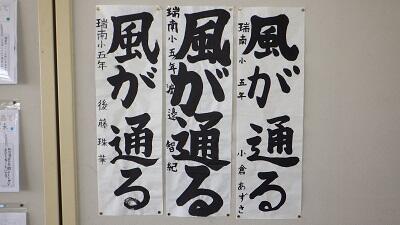 風が通る
瑞南小五年 小倉あずさ
風が通る
瑞南小五年 渡邉智紀
風が通る
瑞南小五年 後藤珠葉